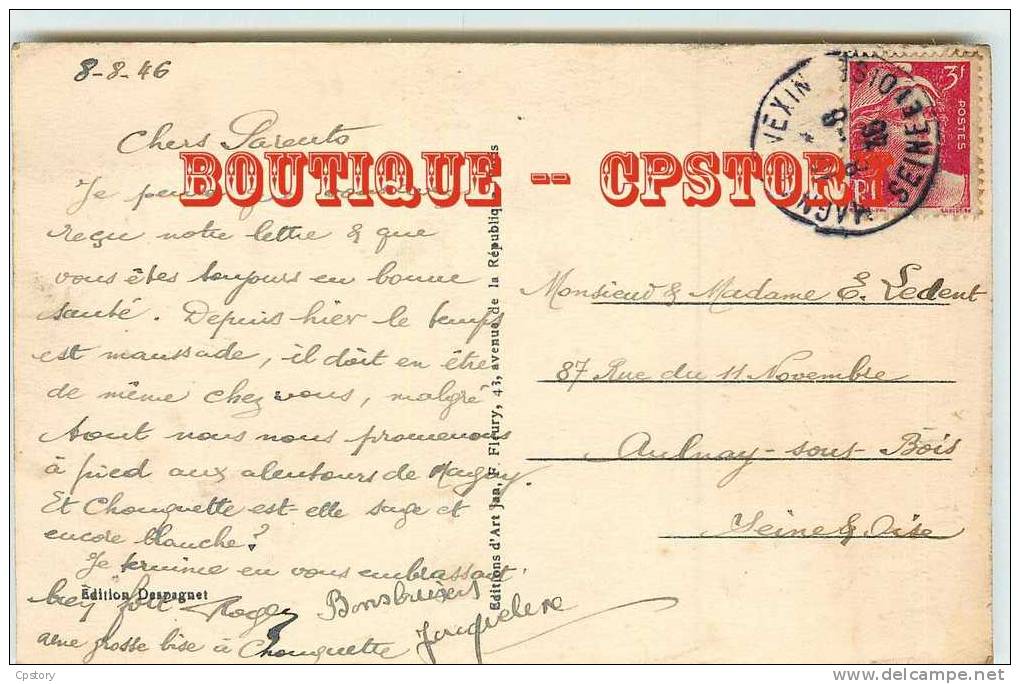 8-8-46
Chers Parents
BOUTIQUE -- CPSTORY
Je
reçu notre lettre & que
vous êtes toujours en bonne
santé. Depuis hier le temps
est maussade, il doit en être
de même chez vous, malgré
tout nous nous promenons
à pied aux alentours de Magny.
Et Chouquette est-elle sage et
encore blanche?
Je termine en vous embrassant
bien fort Roger Bons baisers
Jacqueline
une grosse bise à Chouquette
Édition Despagnet
Editions d'Art Jan, F. Fleury, 43, avenue de la République
3f
POSTES
VEXIN
SEINE ET OISE
Monsieur & Madame E. Ledent
87 Rue du 11 Novembre
Aulnay-sous-Bois
Seine & Oise
Cpstory
www.delcampe.net